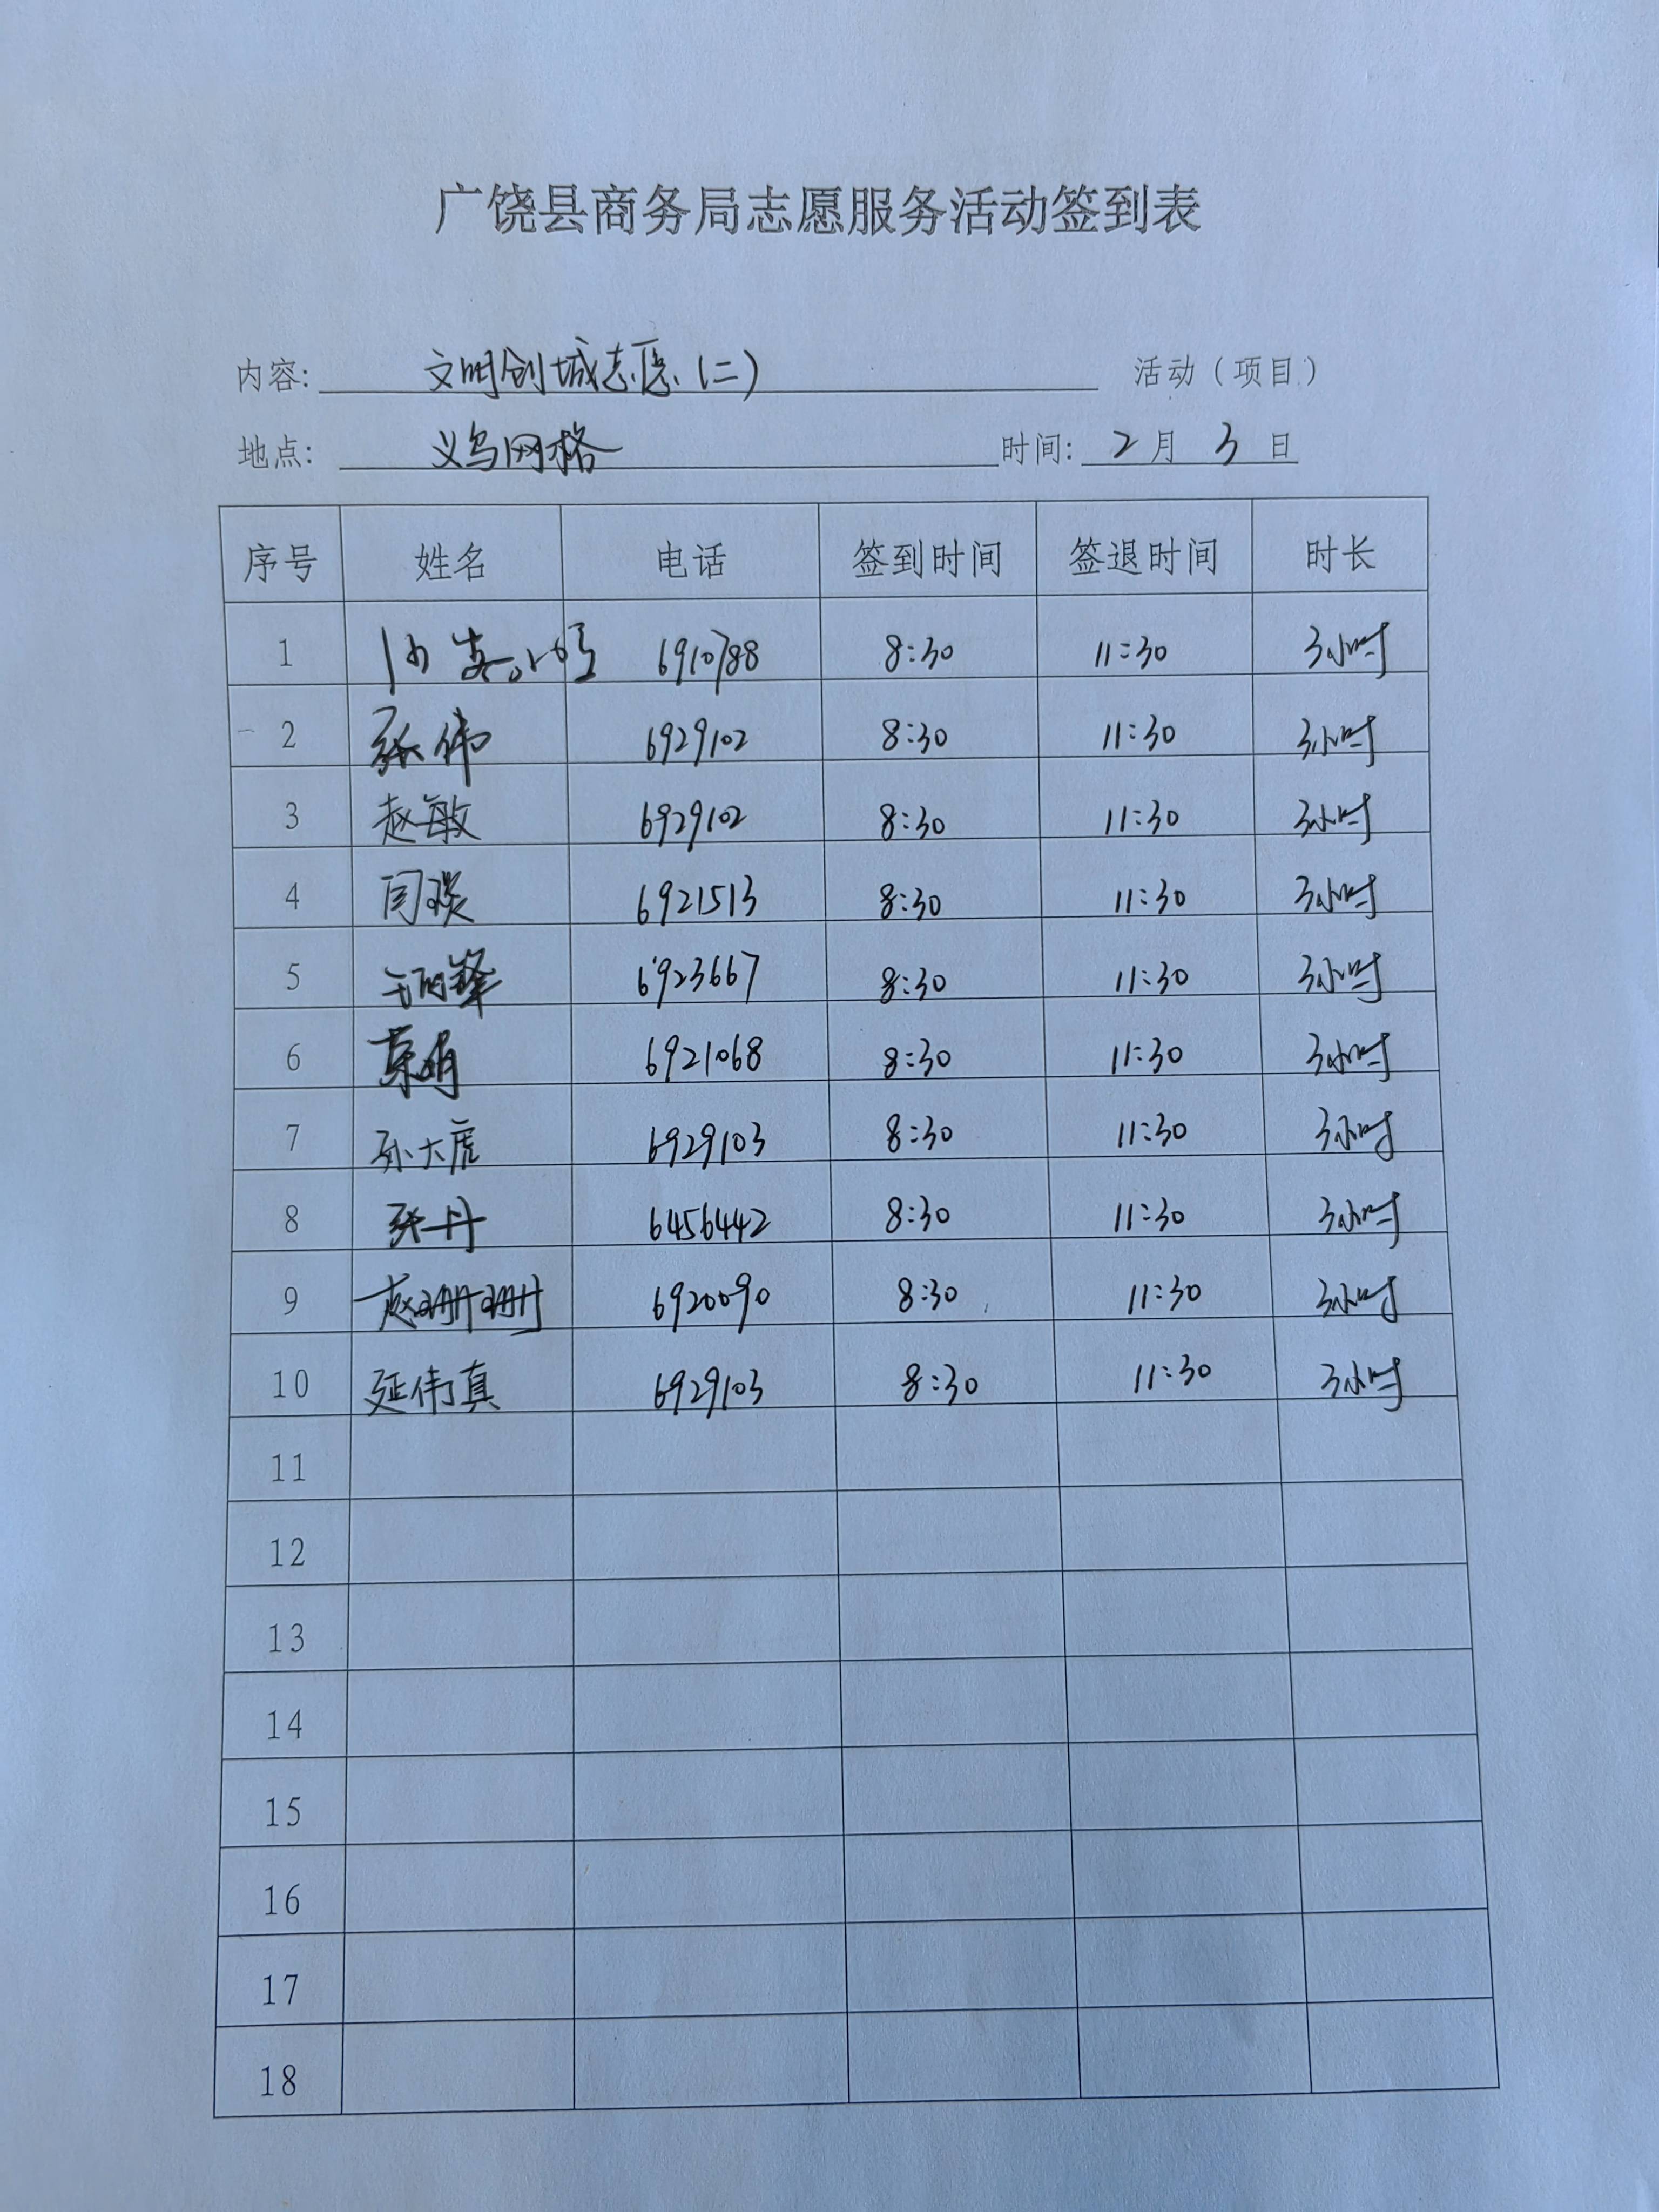 广饶县商务局志愿服务活动签到表
内容: 文明创城志愿(二) 活动(项目)
地点: 义乌网格 时间: 2月3日
序号 姓名 电话 签到时间 签退时间 时长
1 6910788 8:30 11:30 3小时
2 张伟 6929102 8:30 11:30 3小时
3 赵敏 6929102 8:30 11:30 3小时
4 闫琰 6921513 8:30 11:30 3小时
5 6923667 8:30 11:30 3小时
6 6921068 8:30 11:30 3小时
7 孙大虎 6929103 8:30 11:30 3小时
8 张丹 6456442 8:30 11:30 3小时
9 赵珊珊 6920090 8:30 11:30 3小时
10 延伟真 6929103 8:30 11:30 3小时
11
12
13
14
15
16
17
18